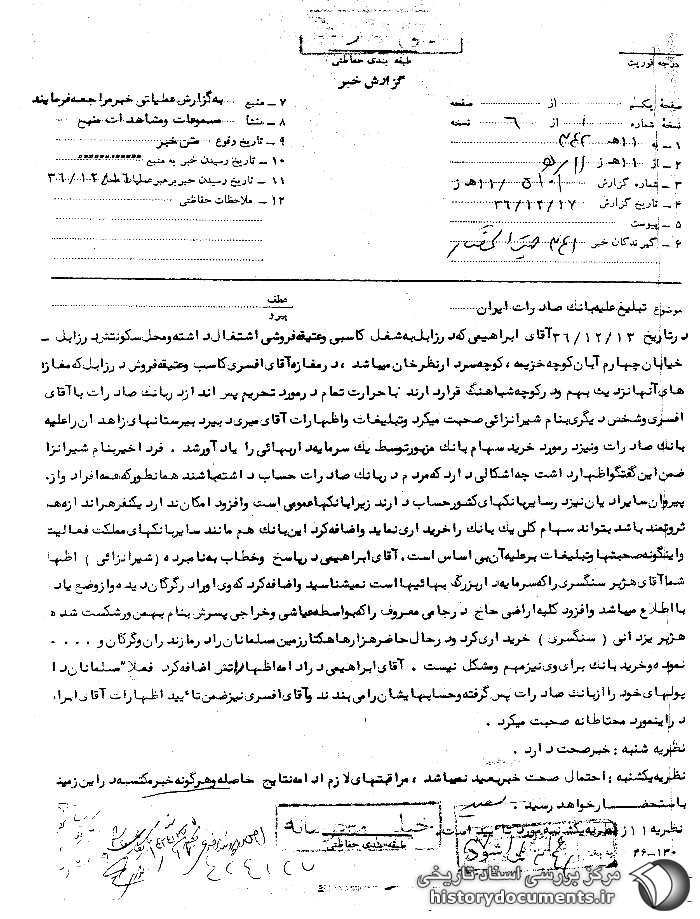 طبقه بندی حفاظتی
گزارش خبر
درجه فوریت
صفحهٔ یکم از صفحه
نسخهٔ شماره ۱ از ۶ نسخه
۱ ـ به ۱۱ هـ ۳۴۲
۲ ـ از ۱۱ هـ ز
۳ ـ شماره گزارش ۵۱۰۱ / ۱۱ هـ ز
۴ ـ تاریخ گزارش ۳۶/۱۲/۱۷
۵ ـ پیوست
۶ ـ گیرندگان خبر
۷ ـ منبع به گزارش عملیاتی خبر مراجعه فرمایند
۸ ـ منشأ مسموعات و مشاهدات منبع
۹ ـ تاریخ وقوع متن خبر
۱۰ ـ تاریخ رسیدن خبر به منبع
۱۱ ـ تاریخ رسیدن خبر برهبر عملیات ۳۶/۱۲/۱۶
۱۲ ـ ملاحظات حفاظتی
عطف
پیرو
موضوع تبلیغ علیه بانک صادرات ایران
در تاریخ ۳۶/۱۲/۱۳ آقای ابراهیمی که در زابل به شغل کاسبی و عتیقه فروشی اشتغال داشته و محل سکونتش در زابل ـ
خیابان چهارم آبان کوچه خزیمه ، کوچه سردار نظرخان میباشد ، در مغازه آقای افسری کاسب و عتیقه فروش در زابل که مغازه
های آنها نزدیک بهم و در کوچه شباهنگ قرار دارند با حرارت تمام در مورد تحریم پس انداز در بانک صادرات با آقای
افسری و شخص دیگری بنام شیرانزائی صحبت میکرد و تبلیغات و اظهارات آقای میری دبیر دبیرستانهای زاهدان را علیه
بانک صادرات و نیز در مورد خرید سهام بانک مزبور توسط یک سرمایه دار بهائی را یادآور شد . فرد اخیر بنام شیرانزا
ضمن این گفتگو اظهار داشت چه اشکالی دارد که مردم در بانک صادرات حساب داشته باشند همانطور که همه افراد و از
پیروان سایر ادیان نیز در سایر بانکهای کشور حساب دارند زیرا بانکها عمومی است و افزود امکان ندارد یکنفر هر اندازه هم
ثروتمند باشد بتواند سهام کلی یک بانک را خریداری نماید و اضافه کرد این بانک هم مانند سایر بانکهای مملکت فعالیت
و اینگونه صحبتها و تبلیغات بر علیه آن بی اساس است . آقای ابراهیمی در پاسخ و خطاب به نامبرده (شیرانزائی ) اظها
شما آقای هژبر سنگسری را که سرمایه دار بزرگ بهائیها است نمیشناسید و اضافه کرد که وی او را در گرگان دیده و از وضع یاد
با اطلاع میباشد و افزود کلیه اراضی حاج درجامی معروف را که بواسطه عیاشی و خراجی پسرش بنام بهمن ورشکست شده
هژبر یزدانی ( سنگسری ) خریداری کرد و در حال حاضر هزارها هکتار زمین مسلمانان را در مازندران و گرگان و ....
نموده و خرید بانک برای وی نیز مهم و مشکل نیست . آقای ابراهیمی در ادامه اظهاراتش اضافه کرد فعلا" مسلمانان دا
پولهای خود را از بانک صادرات پس گرفته و حسابهایشان را می بندند و آقای افسری نیز ضمن تأیید اظهارات آقای ابرا
در اینمورد محتاطانه صحبت میکرد .
نظریه شنبه : خبر صحت دارد .
نظریه یکشنبه : احتمال صحت خبر بعید نمیباشد ، مراقبتهای لازم ادامه نتایج حاصله و هرگونه خبر مکتسبه در این زمین
باستحضار خواهد رسید . سعید
نظریه ۱۱ ز نظریه یکشنبه مورد تأیید است .
۴۶-۱۳۰
خیلی محرمانه
طبقه بندی حفاظتی
مرکز بررسی اسناد تاریخی
historydocuments.ir